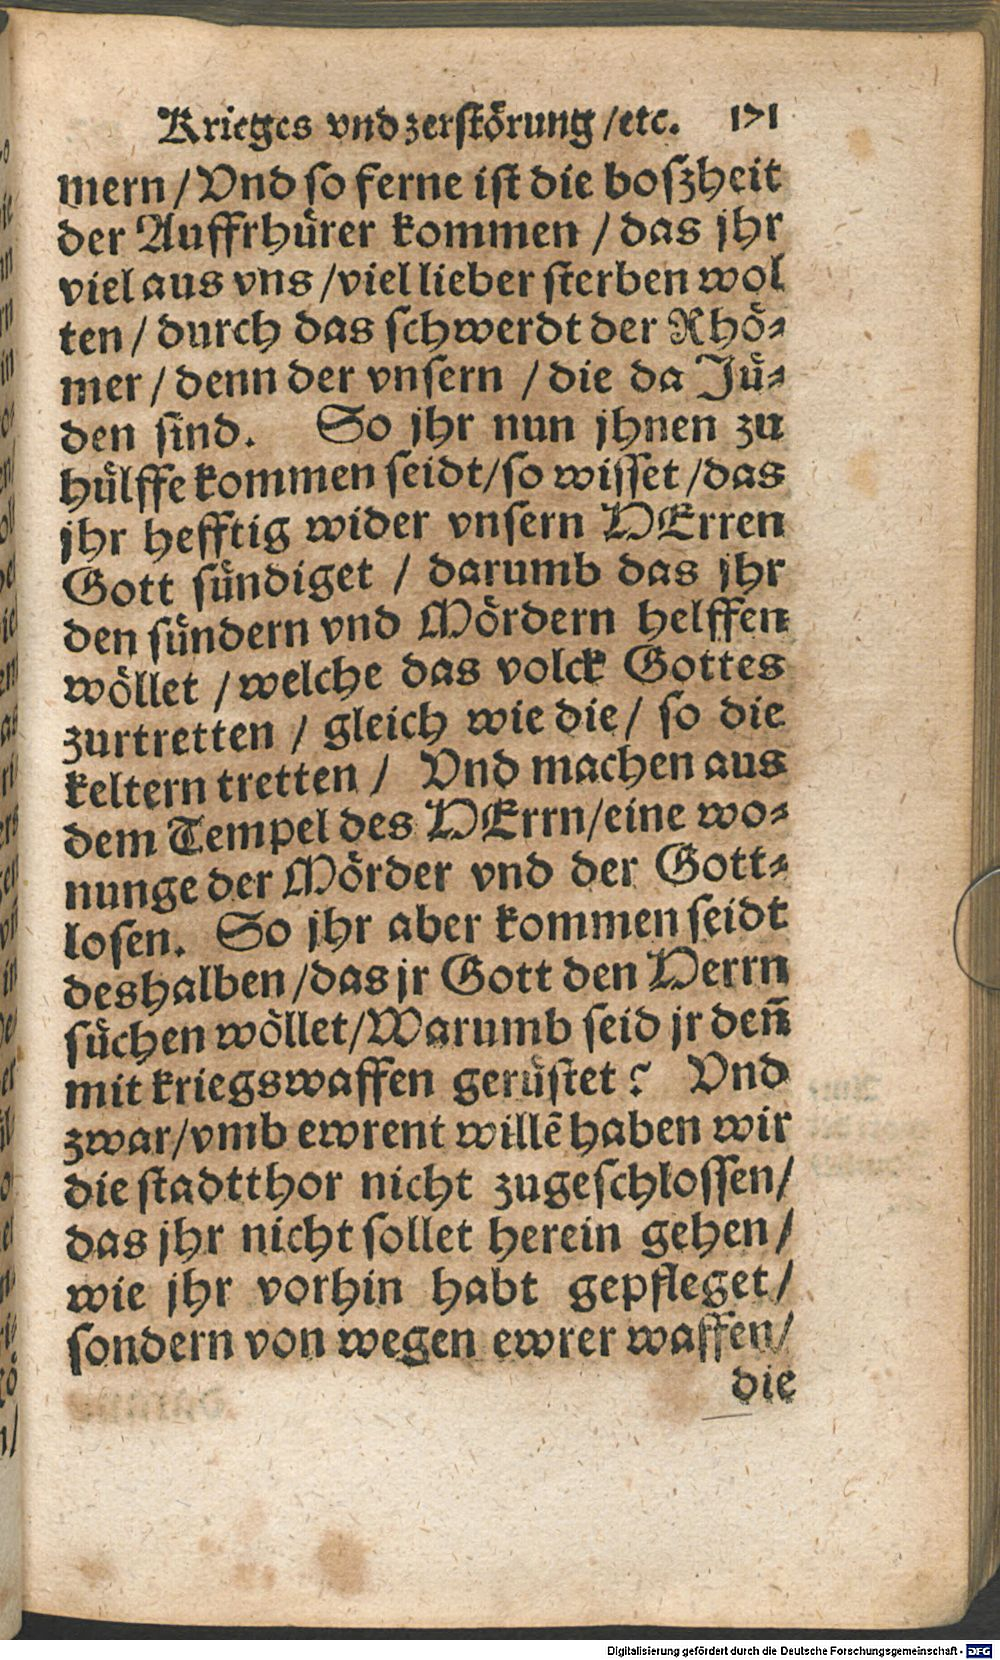 Krieges vnd zerstörung /etc. 171
mern / Vnd so ferne ist die boszheit
der Auffrhürer kommen / das jhr
viel aus vns /viel lieber sterben wol
ten / durch das schwerdt der Rhö⸗
mer / denn der vnsern / die da Jü⸗
den sind. So jhr nun jhnen zu
hülffe kommen seidt/so wisset /das
jhr hefftig wider vnsern HErren
Gott sündiget / darumb das jhr
den sündern vnd Mördern helffen
wöllet /welche das volck Gottes
zurtretten / gleich wie die/ so die
keltern tretten / Vnd machen aus
dem Tempel des HErrn/eine wo⸗
nunge der Mörder vnd der Gott⸗
losen. So jhr aber kommen seidt
deshalben /das jr Gott den Herrn
süchen wöllet/Warumb seid jr deñ
mit kriegswaffen gerüstet? Vnd
zwar/vmb ewrent willẽ haben wir
die stadtthor nicht zugeschlossen/
das jhr nicht sollet herein gehen/
wie jhr vorhin habt gepfleget/
sondern von wegen ewrer waffen/
die
Digitalisierung gefördert durch die Deutsche Forschungsgemeinschaft - DFG